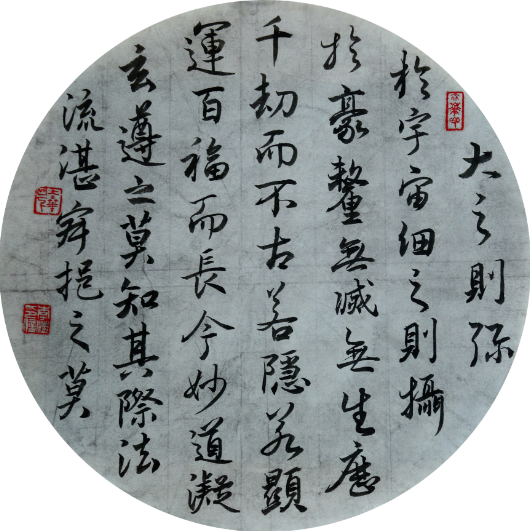 大之則弥
於宇宙細之則攝
於豪釐無滅無生歷
千劫而不古若隱若顯
運百福而長今妙道凝
玄遵之莫知其際法
流湛寂挹之莫